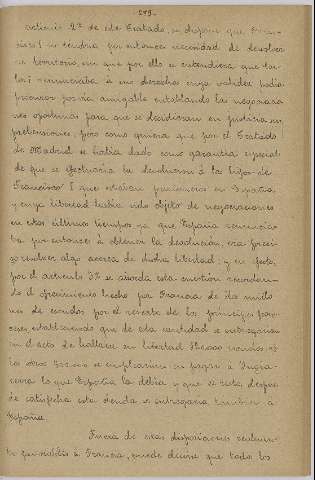 -219-
artículo 2º de este Tratado, se dispone que Fran-
cisco I no tendría por entonces necesidad de devolver
su territorio, sin que por ello se entendiera que Car-
los I renunciaba á sus derechos cuya validez podía
procurar por vía amigable entablando las negociacio-
nes oportunas para que se decidieran en justicia sus
pretensiones; pero como quiera que por el Tratado
de Madrid se había dado como garantía especial
de que se efectuaría la devolución á los hijos de
Francisco I que estaban prisioneros en España,
y cuya libertad había sido objeto de negociaciones
en estos últimos tiempos ya que España renuncia-
ba por entonces á obtener la devolución, era preci-
so resolver algo acerca de dicha libertad; y en efecto,
por el artículo 3º se aborda esta cuestión recordan-
do el ofrecimiento hecho por Francia de dos millo-
nes de escudos por el rescate de los príncipes fran-
ceses, estableciendo que de esta cantidad se entregarían
en el acto de hallarse en libertad 1200000 siendo
los otros se emplearían en pagar á Ingla-
terra lo que España la debía y que el resto despues
de satisfecha esta deuda se entregaría tambien á
España.
Fuera de estas disposiciones realmen-
te favorables á Francia, puede decirse que todas las